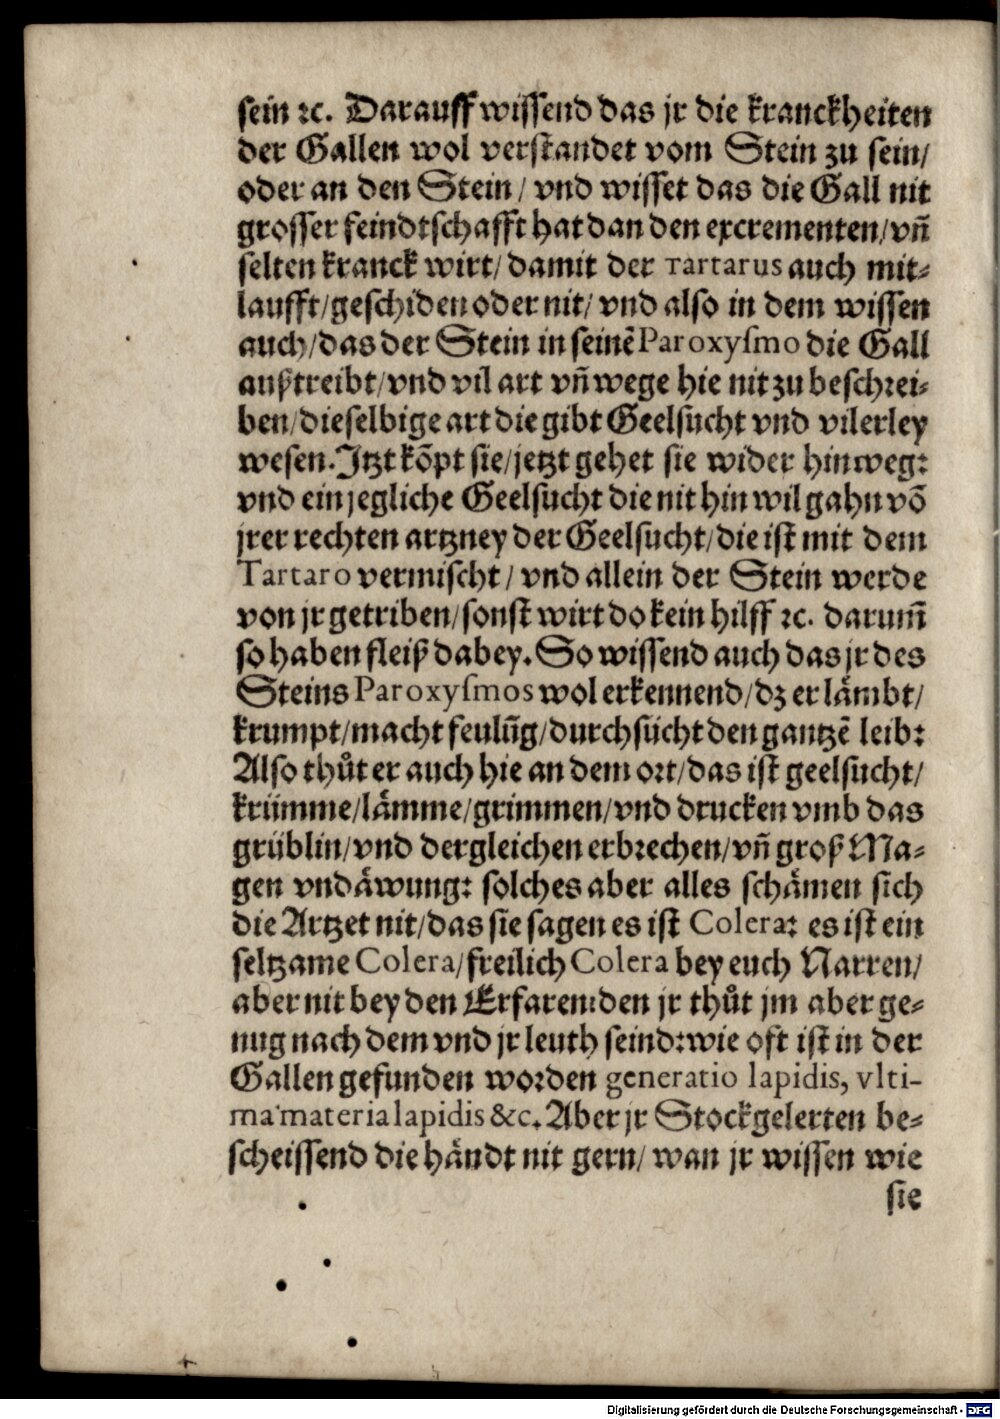 sein ꝛc. Darauff wissend das jr die kranckheiten
der Gallen wol verstandet vom Stein zu sein/
oder an den Stein / vnd wisset das die Gall nit
grosser feindtschafft hat dan den excrementen/ vñ
selten kranck wirt/ damit der Tartarus auch mit⸗
laufft/ geschiden oder nit/ vnd also in dem wissen
auch/ das der Stein in seinẽ Paroxysmo die Gall
außtreibt/ vnd vil art vñ wege hie nit zu beschrei⸗
ben/ dieselbige art die gibt Geelsucht vnd vilerley
wesen. Jtzt kõpt sie/ jetzt gehet sie wider hinweg:
vnd ein jegliche Geelsucht die nit hin wil gahn võ
jrer rechten artzney der Geelsucht/ die ist mit dem
Tartaro vermischt / vnd allein der Stein werde
von jr getriben/ sonst wirt do kein hilff ꝛc. darum̃
so haben fleiß dabey. So wissend auch das jr des
Steins Paroxysmos wol erkennend/ dz er lämbt/
krumpt/ macht feulũg/ durchsücht den gantzẽ leib:
Also thůt er auch hie an dem ort/ das ist geelsucht/
krümme/ lämme/ grimmen/ vnd drucken vmb das
grüblin/ vnd dergleichen erbrechen/ vñ groß Ma⸗
gen vndäwung: solches aber alles schämen sich
die Artzet nit/ das sie sagen es ist Colera: es ist ein
seltzame Colera/ freilich Colera bey euch Narren/
aber nit bey den Erfarenden jr thůt jm aber ge⸗
nug nach dem vnd jr leuth seind: wie oft ist in der
Gallen gefunden worden generatio lapidis, vlti-
ma materia lapidis &c. Aber jr Stockgelerten be⸗
scheissend die händt nit gern/ wan jr wissen wie
sie
Digitalisierung gefördert durch die Deutsche Forschungsgemeinschaft - DFG